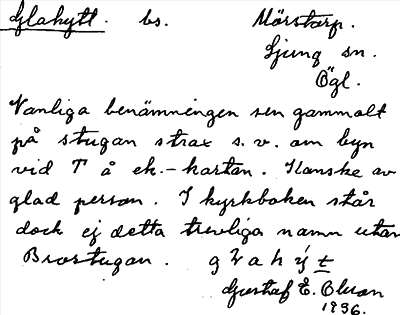 Glahytt. bs. Mörstorp.
Ljung sn.
Ögl.
Vanliga benämningen sen gammalt
på stugan strax s. v. om byn
vid T å ek.-kartan. Kanske av
glad person. I kyrkboken står
dock ej detta trevliga namn utan
Brostugan. g l a h ý t
Gustaf E. Olsson
1936.